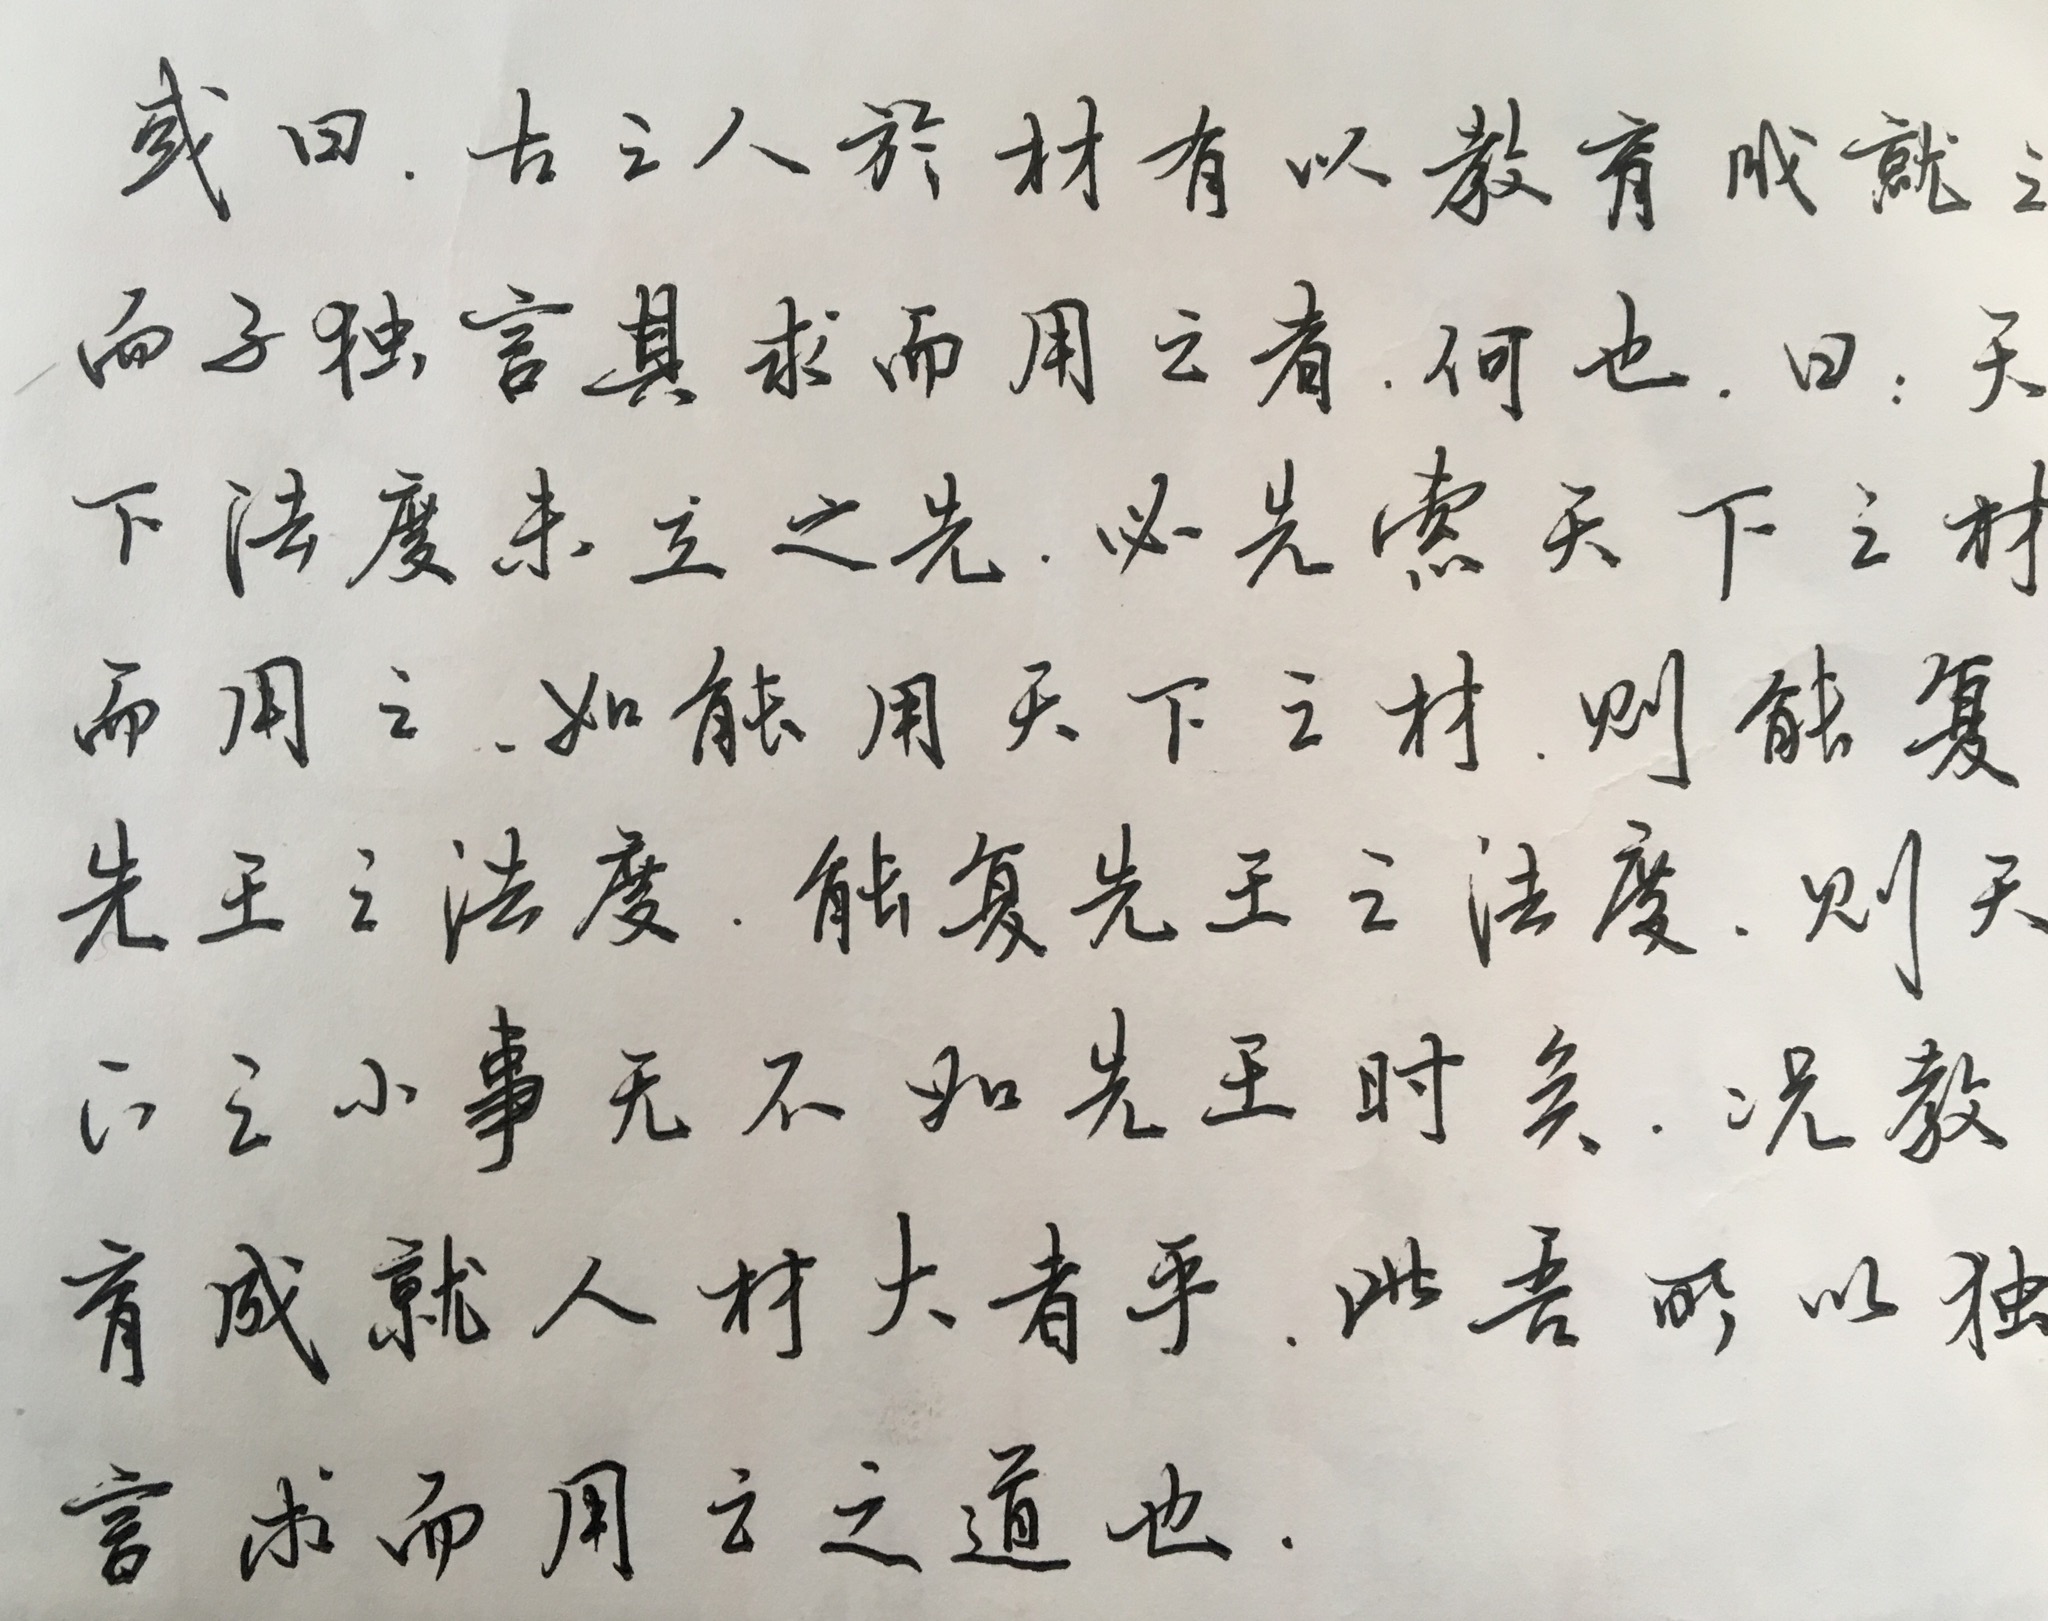 或曰.古之人於材有以教育成就之
而子独言其求而用之者.何也.曰:天
下法度未立之先.必先索天下之材
而用之.如能用天下之材.则能复
先王之法度.能复先王之法度.则天
下之小事无不如先王时矣.况教
育成就人材大者乎.此吾所以独
言求而用之之道也.